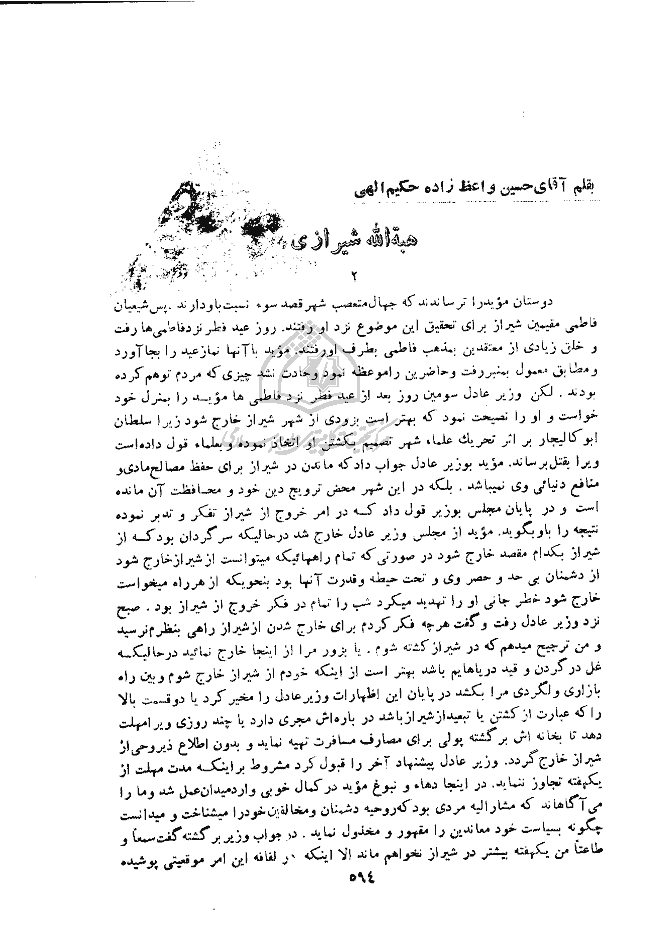 بقلم آقای حسین واعظ زاده حکیم الهی
هبةالله شیرازی
۲
دوستان مؤیدرا ترساندند که جهال متعصب شهر قصد سوء نسبت باو دارند . پس شیعیان
فاطمی مقیمین شیراز برای تحقیق این موضوع نزد او رفتند. روز عید فطر نزد فاطمی‌ها رفت
و خلق زیادی از معتقدین بمذهب فاطمی بطرف او رفتند. مؤید باآنها نماز عید را بجا آورد
و مطابق معمول بمنبر رفت و حاضرین را موعظه نمود و حادث نشد چیزی که مردم توهم کرده
بودند . لکن وزیر عادل سومین روز بعد از عید فطر نزد فاطمی ها مؤید را بمنزل خود
خواست و او را نصیحت نمود که بهتر است بزودی از شهر شیراز خارج شود زیرا سلطان
ابوکالیجار بر اثر تحریك علماء شهر تصمیم بکشتن او اتخاذ نموده و بعلماء قول داده است
ویرا بقتل برساند. مؤید بوزیر عادل جواب داد که ماندن در شیراز برای حفظ مصالح مادی و
منافع دنیائی وی نمیباشد . بلکه در این شهر محض ترویج دین خود و محافظت آن مانده
است و در پایان مجلس بوزیر قول داد کـه در امر خروج از شیراز تفکر و تدبر نموده
نتیجه را باو بگوید. مؤید از مجلس وزیر عادل خارج شد در حالیکه سرگردان بود کـه از
شیراز بکدام مقصد خارج شود در صورتی که تمام راههائیکه میتوانست از شیراز خارج شود
از دشمنان بی حد و حصر وی و تحت حیطه و قدرت آنها بود بنحویکه از هر راه میخواست
خارج شود خطر جانی او را تهدید میکرد شب را تمام در فکر خروج از شیراز بود . صبح
نزد وزیر عادل رفت و گفت هرچه فکر کردم برای خارج شدن از شیراز راهی بنظرم نرسید
و من ترجیح میدهم که در شیراز کشته شوم . یا بزور مرا از اینجا خارج نمائید در حالیکـه
غل در گردن و قید در پاهایم باشد بهتر است از اینکه خودم از شیراز خارج شوم و بین راه
بازاری ولگردی مرا بکشد در پایان این اظهارات وزیر عادل را مخیر کرد یا دو قسمت بالا
را که عبارت از کشتن یا تبعید از شیراز باشد در باره‌اش مجری دارد یا چند روزی ویرا مهلت
دهد تا بخانه اش برگشته پولی برای مصارف مسافرت تهیه نماید و بدون اطلاع ذیروحی از
شیراز خارج گردد. وزیر عادل پیشنهاد آخر را قبول کرد مشروط براینکـه مدت مهلت از
یکهفته تجاوز ننماید. در اینجا دهاء و نبوغ مؤید در کمال خوبی وارد میدان عمل شد و ما را
می‌آگاهاند که مشارالیه مردی بود که روحیه دشمنان و مخالفین خود را میشناخت و میدانست
چگونه بسیاست خود معاندین را مقهور و مخذول نماید . در جواب وزیر برگشته گفت سمعاً و
طاعتاً من یکهفته بیشتر در شیراز نخواهم ماند الا اینکه در لفافه این امر موقعیتی پوشیده
۵۹٤